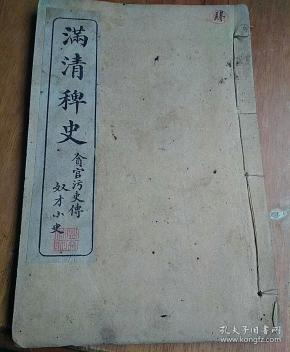 滿清稗史
貪官污吏傳
奴才小史
孔夫子旧书网
www.kongfz.com